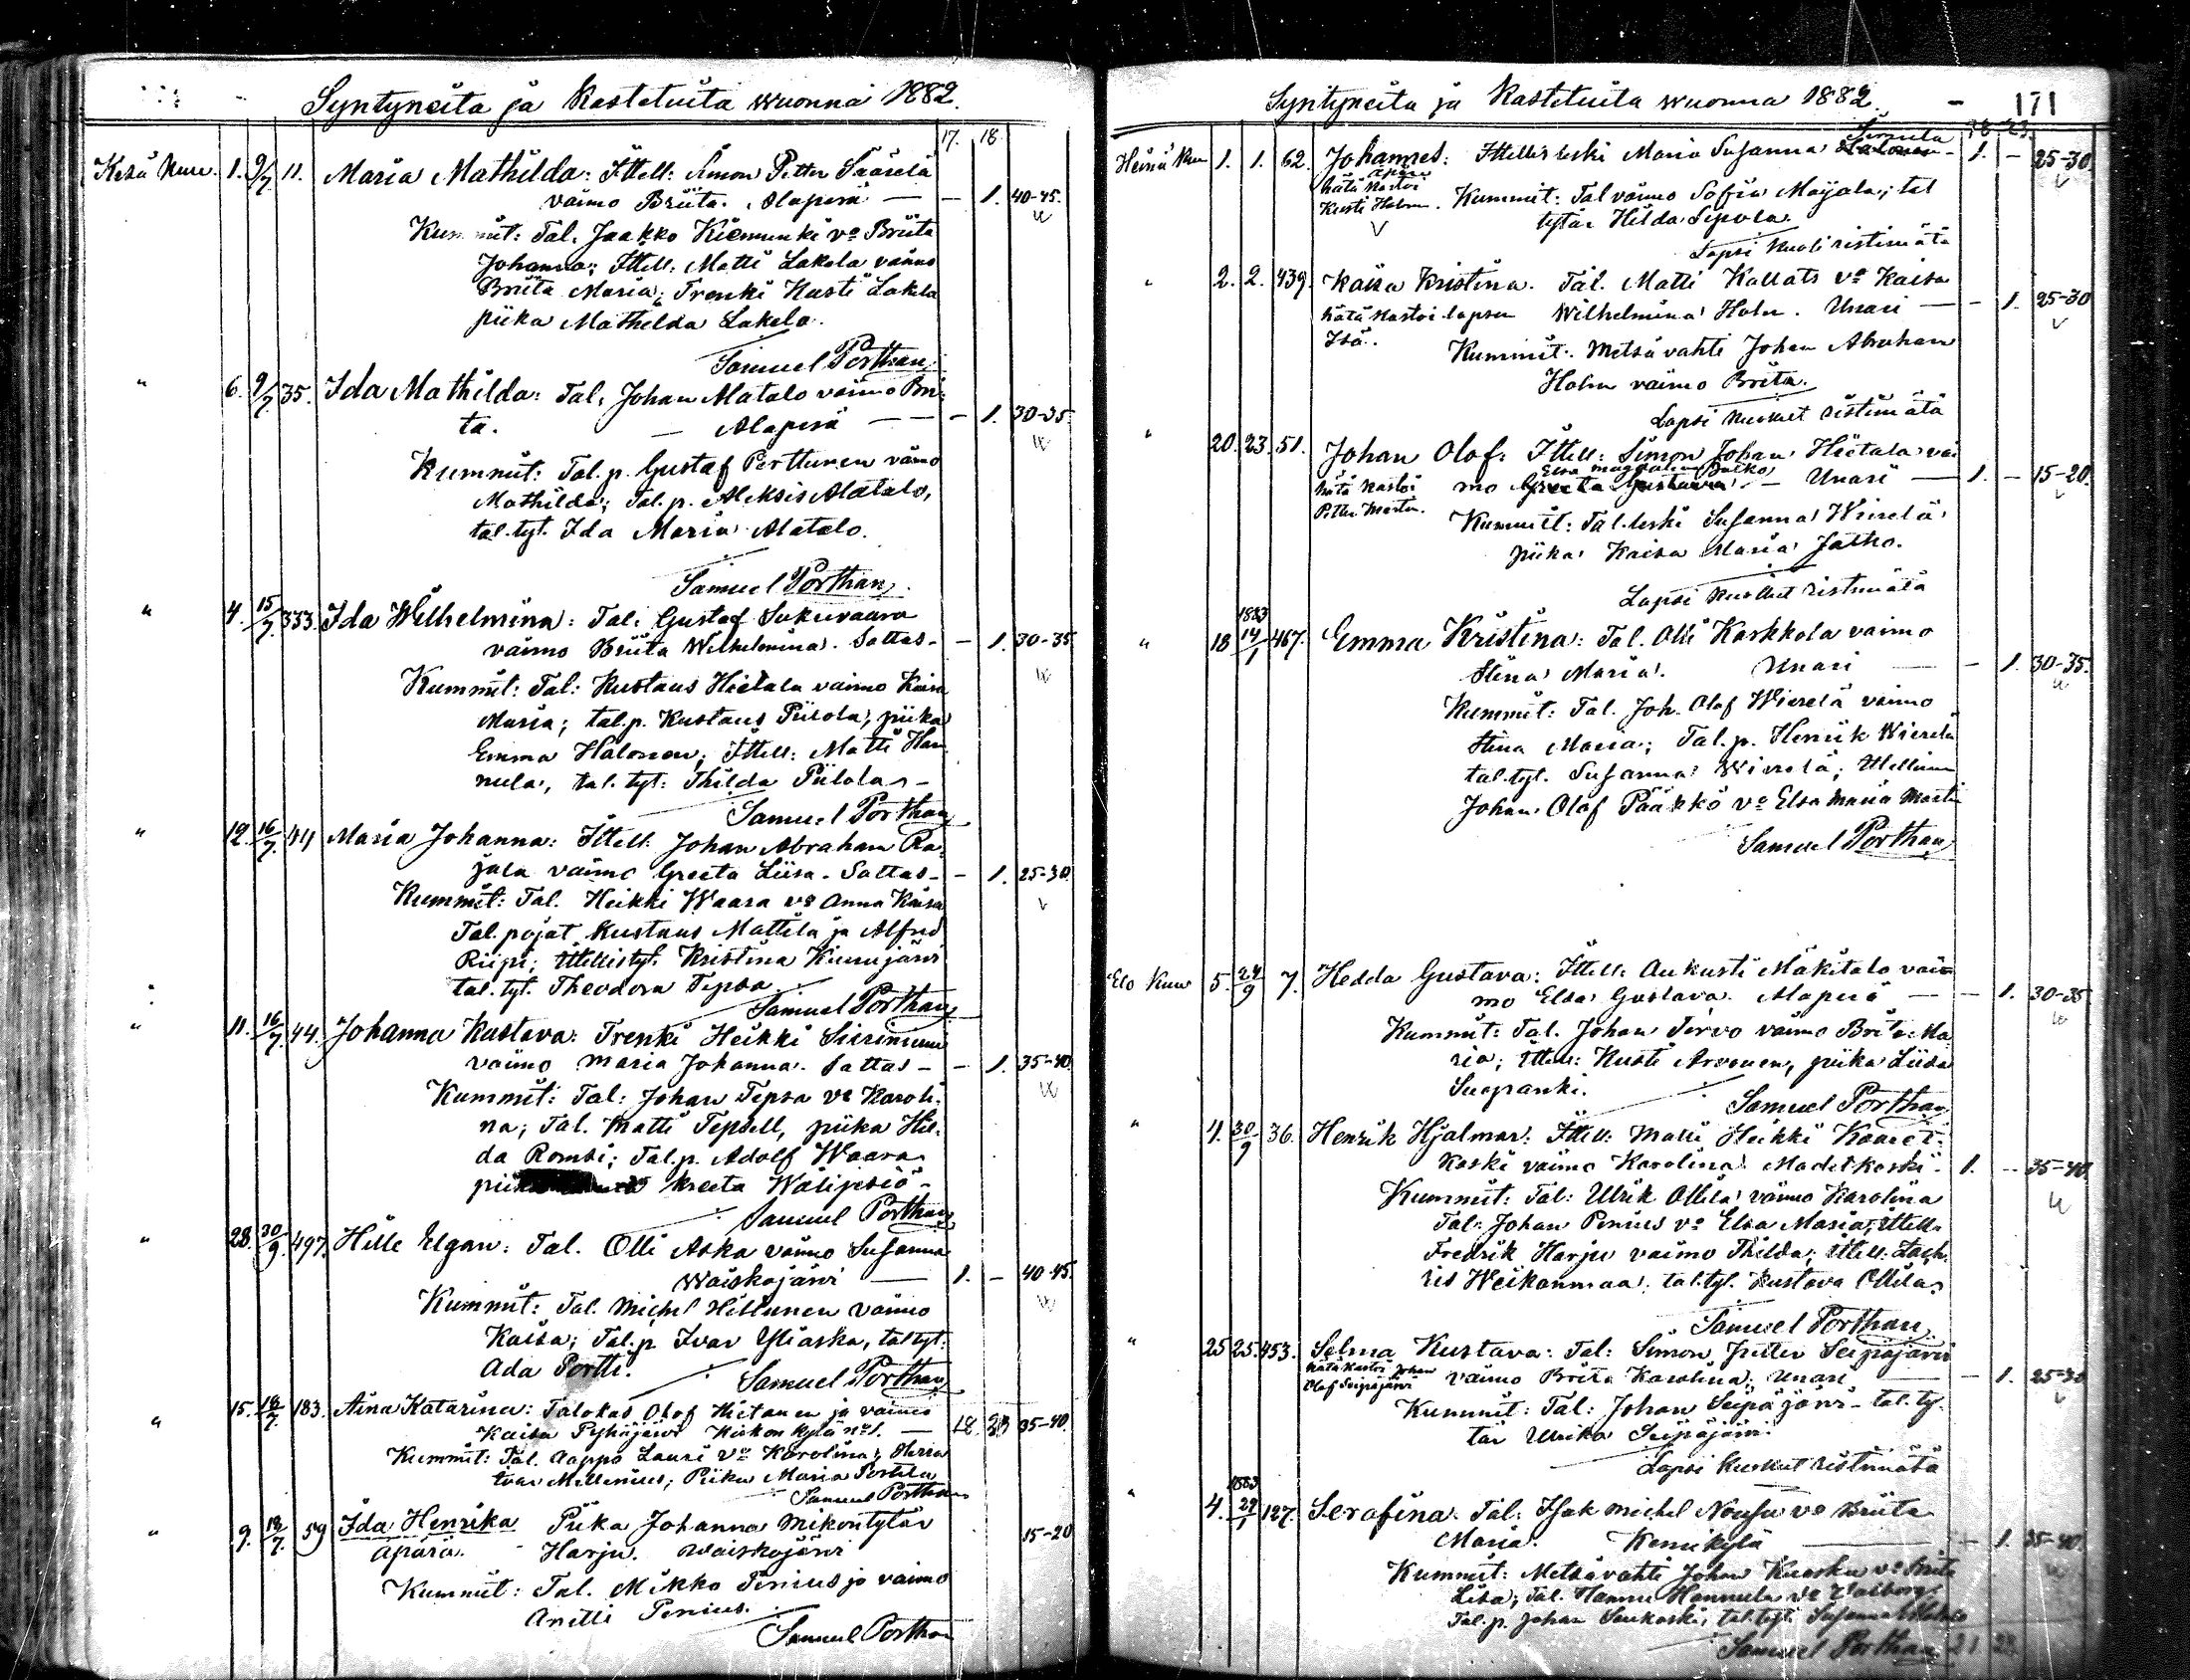 Syntyneitä ja Kastetuita wuonna 1882.
17. 18.
Kesä Kuu. 1. 9/7 11. Maria Mathilda: Ittell: Simon Petter Säärelä
vaimo Briita. Alaperä — — 1. 40-45.
Kummit: Tal. Jaakko Kiemunki vo Briita
Johanna; Ittell: Matti Lakela vaimo
Briita Maria; Trenki Kusti Lakela
piika Mathilda Lakela.
Samuel Porthan.
" 6. 9/7 35. Ida Mathilda: Tal. Johan Alatalo vaimo Bri-
ta. — Alaperä — — 1. 30-35.
Kummit: Tal. p. Gustaf Perttunen vaimo
Mathilda; Tal. p. Aleksis Alatalo,
tal. tyt. Ida Maria Alatalo.
Samuel Porthan.
" 4. 15/7 333. Ida Wilhelmina: Tal. Gustaf Sukuvaara
vaimo Briita Wilhelmina. Sattas- — 1. 30-35
Kummit: Tal: Kustaus Hietala vaimo Kaisa
Maria; tal. p. Kustaus Piilola, piika
Emma Halonen; Ittell: Matti Han
nula, tal. tyt: Thilda Piilola -
Samuel Porthan
" 12. 16/7 44 Maria Johanna: Ittell. Johan Abraham Ra-
jala vaimo Greeta Liisa. Sattas- — 1. 25-30.
Kummit: Tal. Heikki Waara vo Anna Kaisa
Tal. pojat Kustaus Mattila ja Alfred
Riipi; Ittellis tyt. Kristina Kiurujärvi
tal. tyt. Theodora Tepsa.
Samuel Porthan
" 11. 16/7 44. Johanna Kustava: Trenki Heikki Siirinienni
vaimo Maria Johanna. Sattas - — 1. 35-40.
Kummit: Tal: Johan Tepsa vo Karoli-
na; Tal. Matti Tepsell, piika Hil-
da Romsi; Tal. p. Adolf Waara
Kreeta Wälipesiö -
Samuel Porthan
" 28. 30/9 497. Hille Elgan: Tal. Olli Aska vaimo Susanna
Waiskojärvi — 1. - 40-45.
Kummit: Tal. Michel Hiltunen vaimo
Kaisa; Tal. p. Ivar Yliaska, tal tyt.
Ada Portti.
Samuel Porthan
" 15. 18/7 183. Aina Katarina: Talokas Olof Hietanen ja vaimo
Kaisa Pyhäjärvi Kirkon kylä no 1. — 18 23 35-40.
Kummit: Tal. Aappo Lauri vo Karolina;
Ivar Mellenius; Piika Maria Portela
Samuel Porthan
" 9. 18/7 59 Ida Henrika Piika Johanna Mikontytär 15-20
äpärä. Harju. Waiskojärvi
Kummit: Tal. Mikko Penius ja vaimo
Anetti Penius.
Samuel Porthan
Syntyneitä ja Kastetuita wuonna 1882. - 171
18 23.
Heinä Kuu 1. 1. 62. Johannes: Ittellis leski Maria Susanna Sirmila 1. - 25-30.
äpärä
hätä Kastoi
Kusti Holm. Kummit: Tal vaimo Sofia Majala; tal
tytär Hilda Sepola.
Lapsi kuoli ristimätä
" 2. 2. 439. Kaisa Kristina. Tal. Matti Kallats vo Kaisa
hätä Kastoi lapsen Wilhelmina Holm. Unari — — 1. 25-30
Isä. Kummit: Metsävahti Johan Abraham
Holm vaimo Brita.
Lapsi kuollut ristimätä
" 20. 23. 51. Johan Olof: Ittell: Simon Johan Hietala vai
Elsa Magdalena
hätä Kastoi mo Greeta Gustava — Unari — 1. - 15-20.
Petter Martin. Kummit: Tal. leski Susanna Wierelä
piika Kaisa Maria Jatko.
Lapsi kuollut ristimätä
1883
" 18 14/1 467. Emma Kristina: Tal. Olli Karkkola vaimo
Stina Maria. Unari — 1. 30-35.
Kummit: Tal. Joh. Olof Wierelä vaimo
Stina Maria; Tal. p. Henrik Wierelä
tal. tyt. Susanna Wierelä; Ittellinen
Johan Olof Pääkkö vo Elsa Maria Martin
Samuel Porthan
Elo Kuu 5. 24/9 7. Hedda Gustava: Ittell: Aukusti Mäkitalo vai
mo Elsa Gustava. Alaperä — — 1. 30-35
Kummit: Tal. Johan Tervo vaimo Brita Ma
ria; Ittell: Kusti Arvonen, piika Liisa
Suopanki.
Samuel Porthan
" 4. 30/9 36. Henrik Hjalmar: Ittell: Matti Heikki Kaaret-
koski vaimo Karolina. Madetkoski - 1. - 35-40.
Kummit: Tal: Ulrik Ollila vaimo Karolina
Tal: Johan Penius vo Elsa Maria; Ittell.
Fredrik Harju vaimo Thilda; Ittell: Zach-
ris Weikanmaa; tal. tyt. Kustava Ollila.
Samuel Porthan
" 25 25. 453. Selma Kustava: Tal: Simon Petter Seipäjärvi
hätä Kastoi Johan
Olof Seipäjärvi vaimo Brita Karolina; Unari — 1. 25-30
Kummit: Tal: Johan Seipäjärvi - tal. ty-
tär Ulrika Seipäjärvi.
Lapsi kuollut ristimätä
1883
" 4. 29/1 127. Serafina. Tal: Isak Michel Nousu vo Briita
Maria. Kemikylä — 1. 35-40.
Kummit: Metsävahti Johan Kuosku vo Brita
Liisa; Tal. Hannu Hannula vo Walborg
Tal. p. Johan Sukoski; tal. tyt. Susanna
Samuel Porthan 21 23.